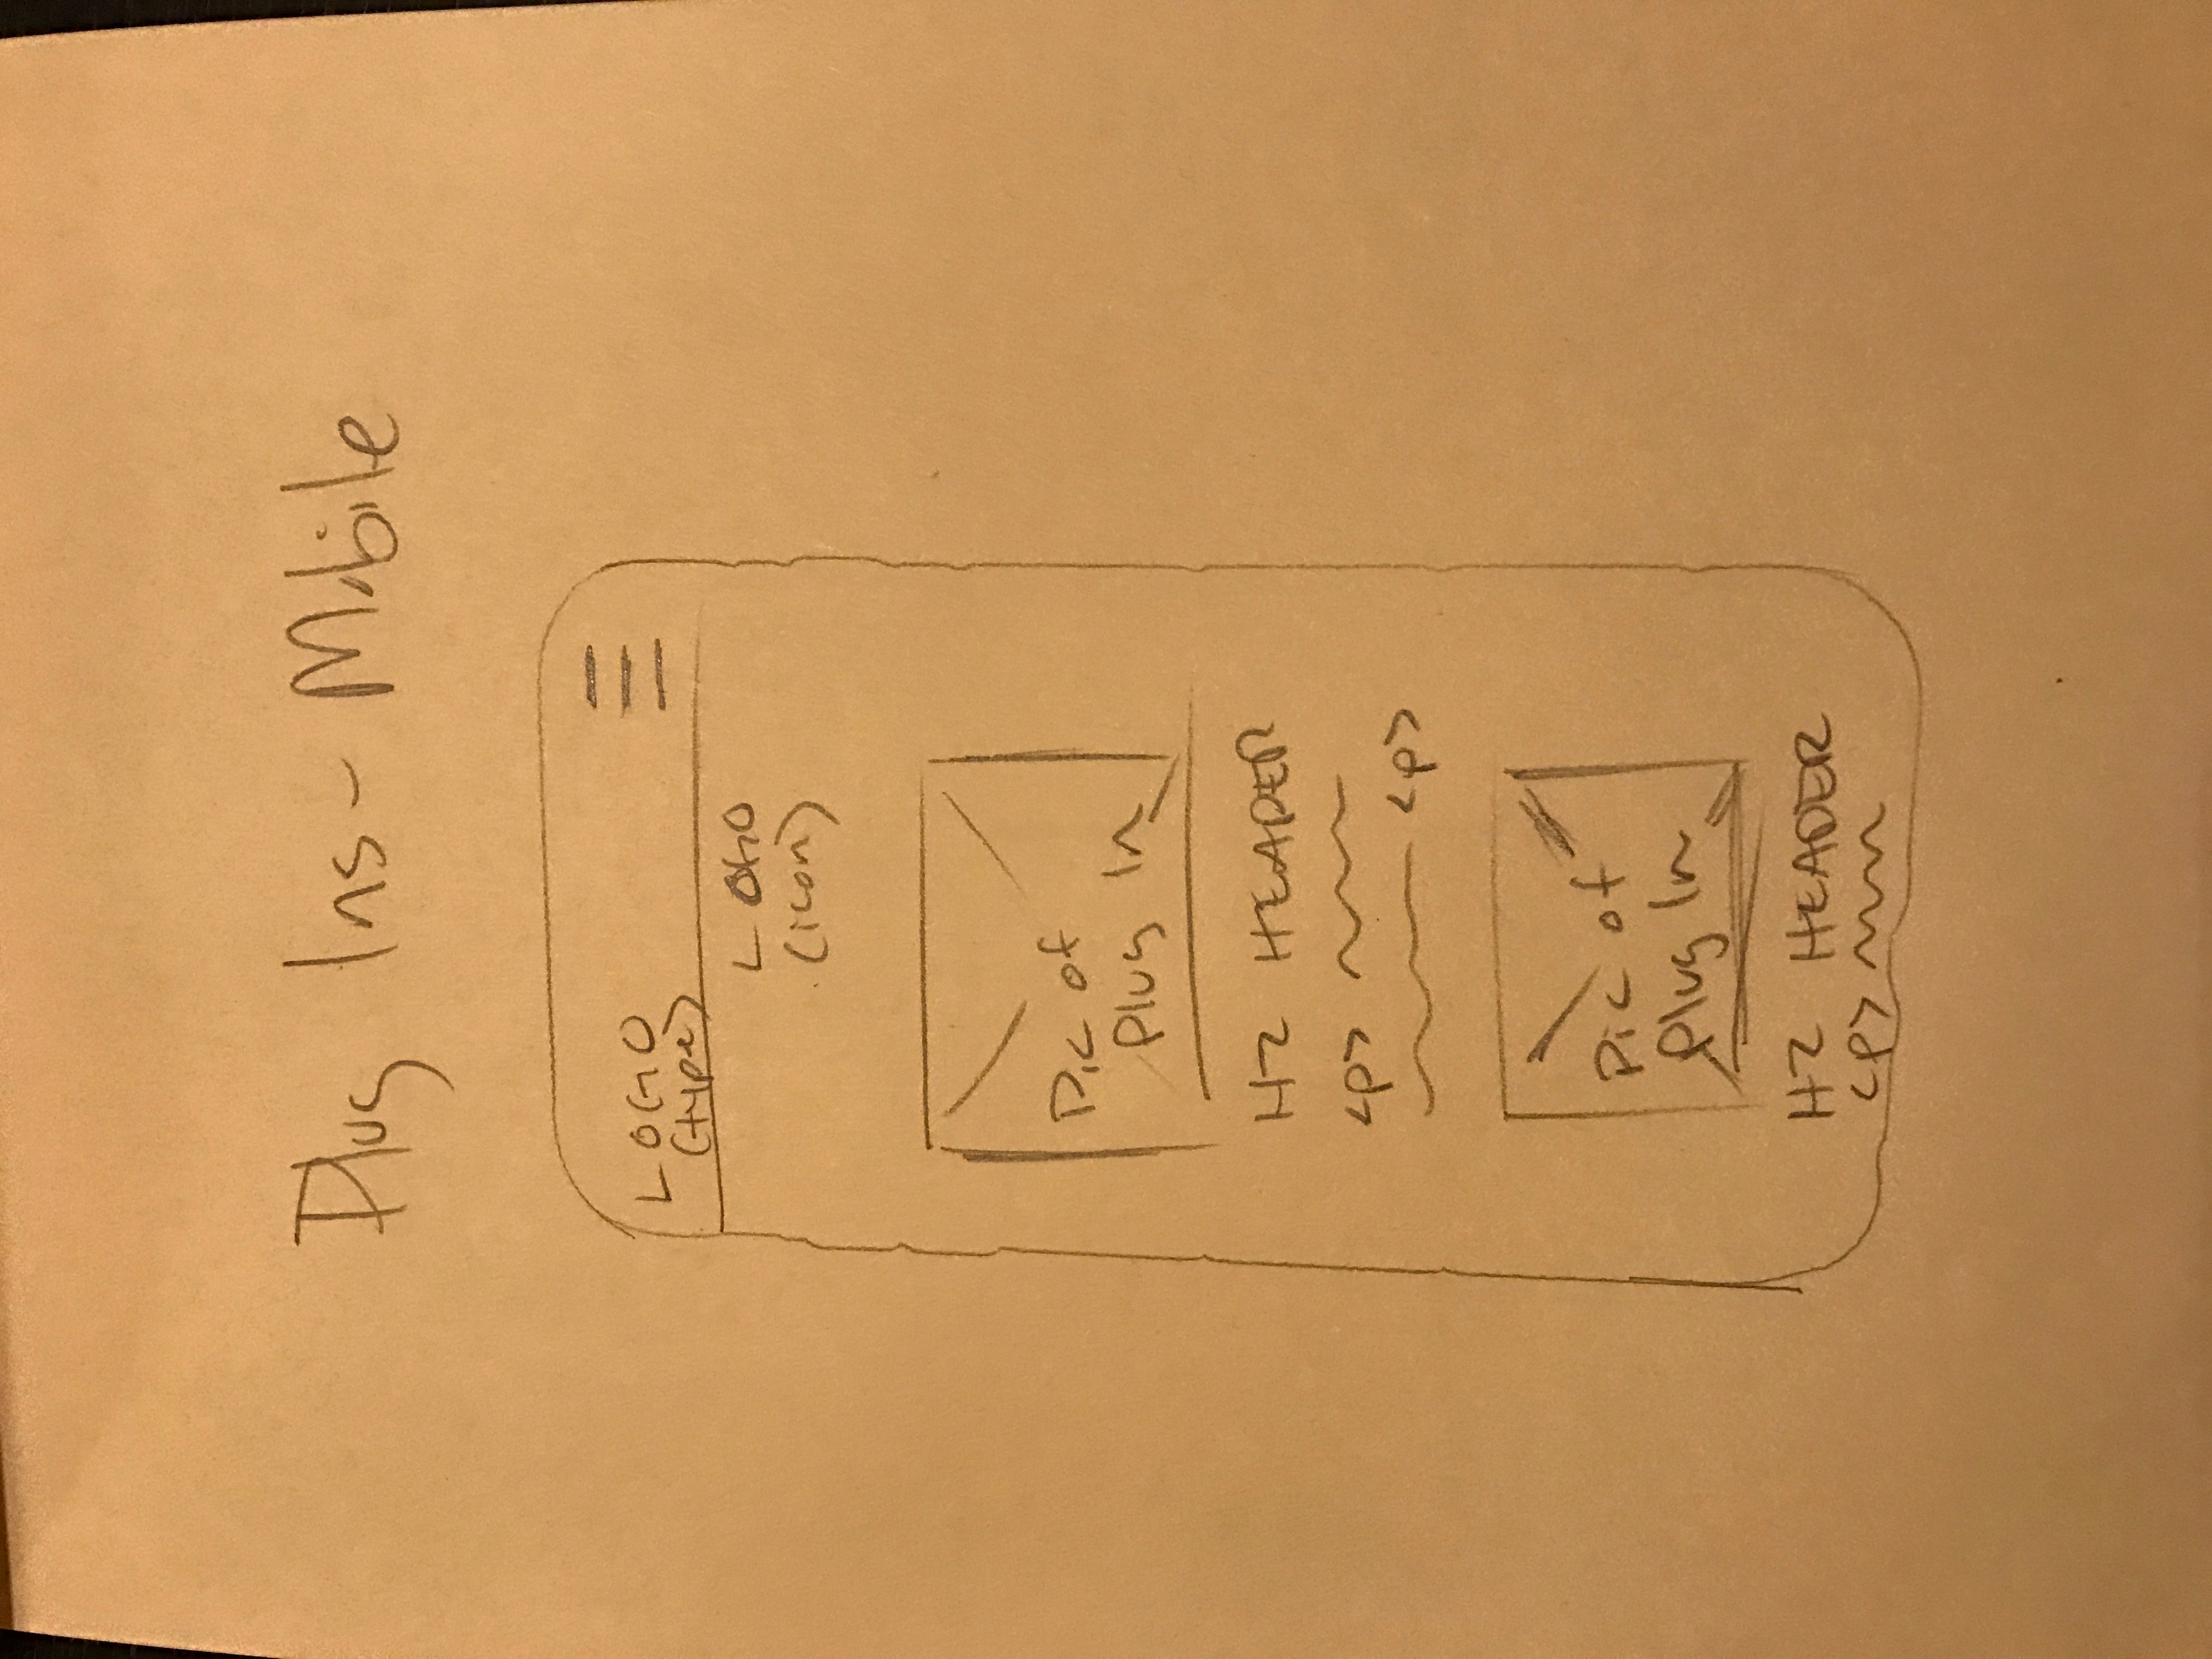 Plug Ins - Mobile
LOGO
(type)
LOGO
(icon)
Pic of
Plug In
H2 HEADER
<p>
<p>
Pic of
Plug In
H2 HEADER
<p>